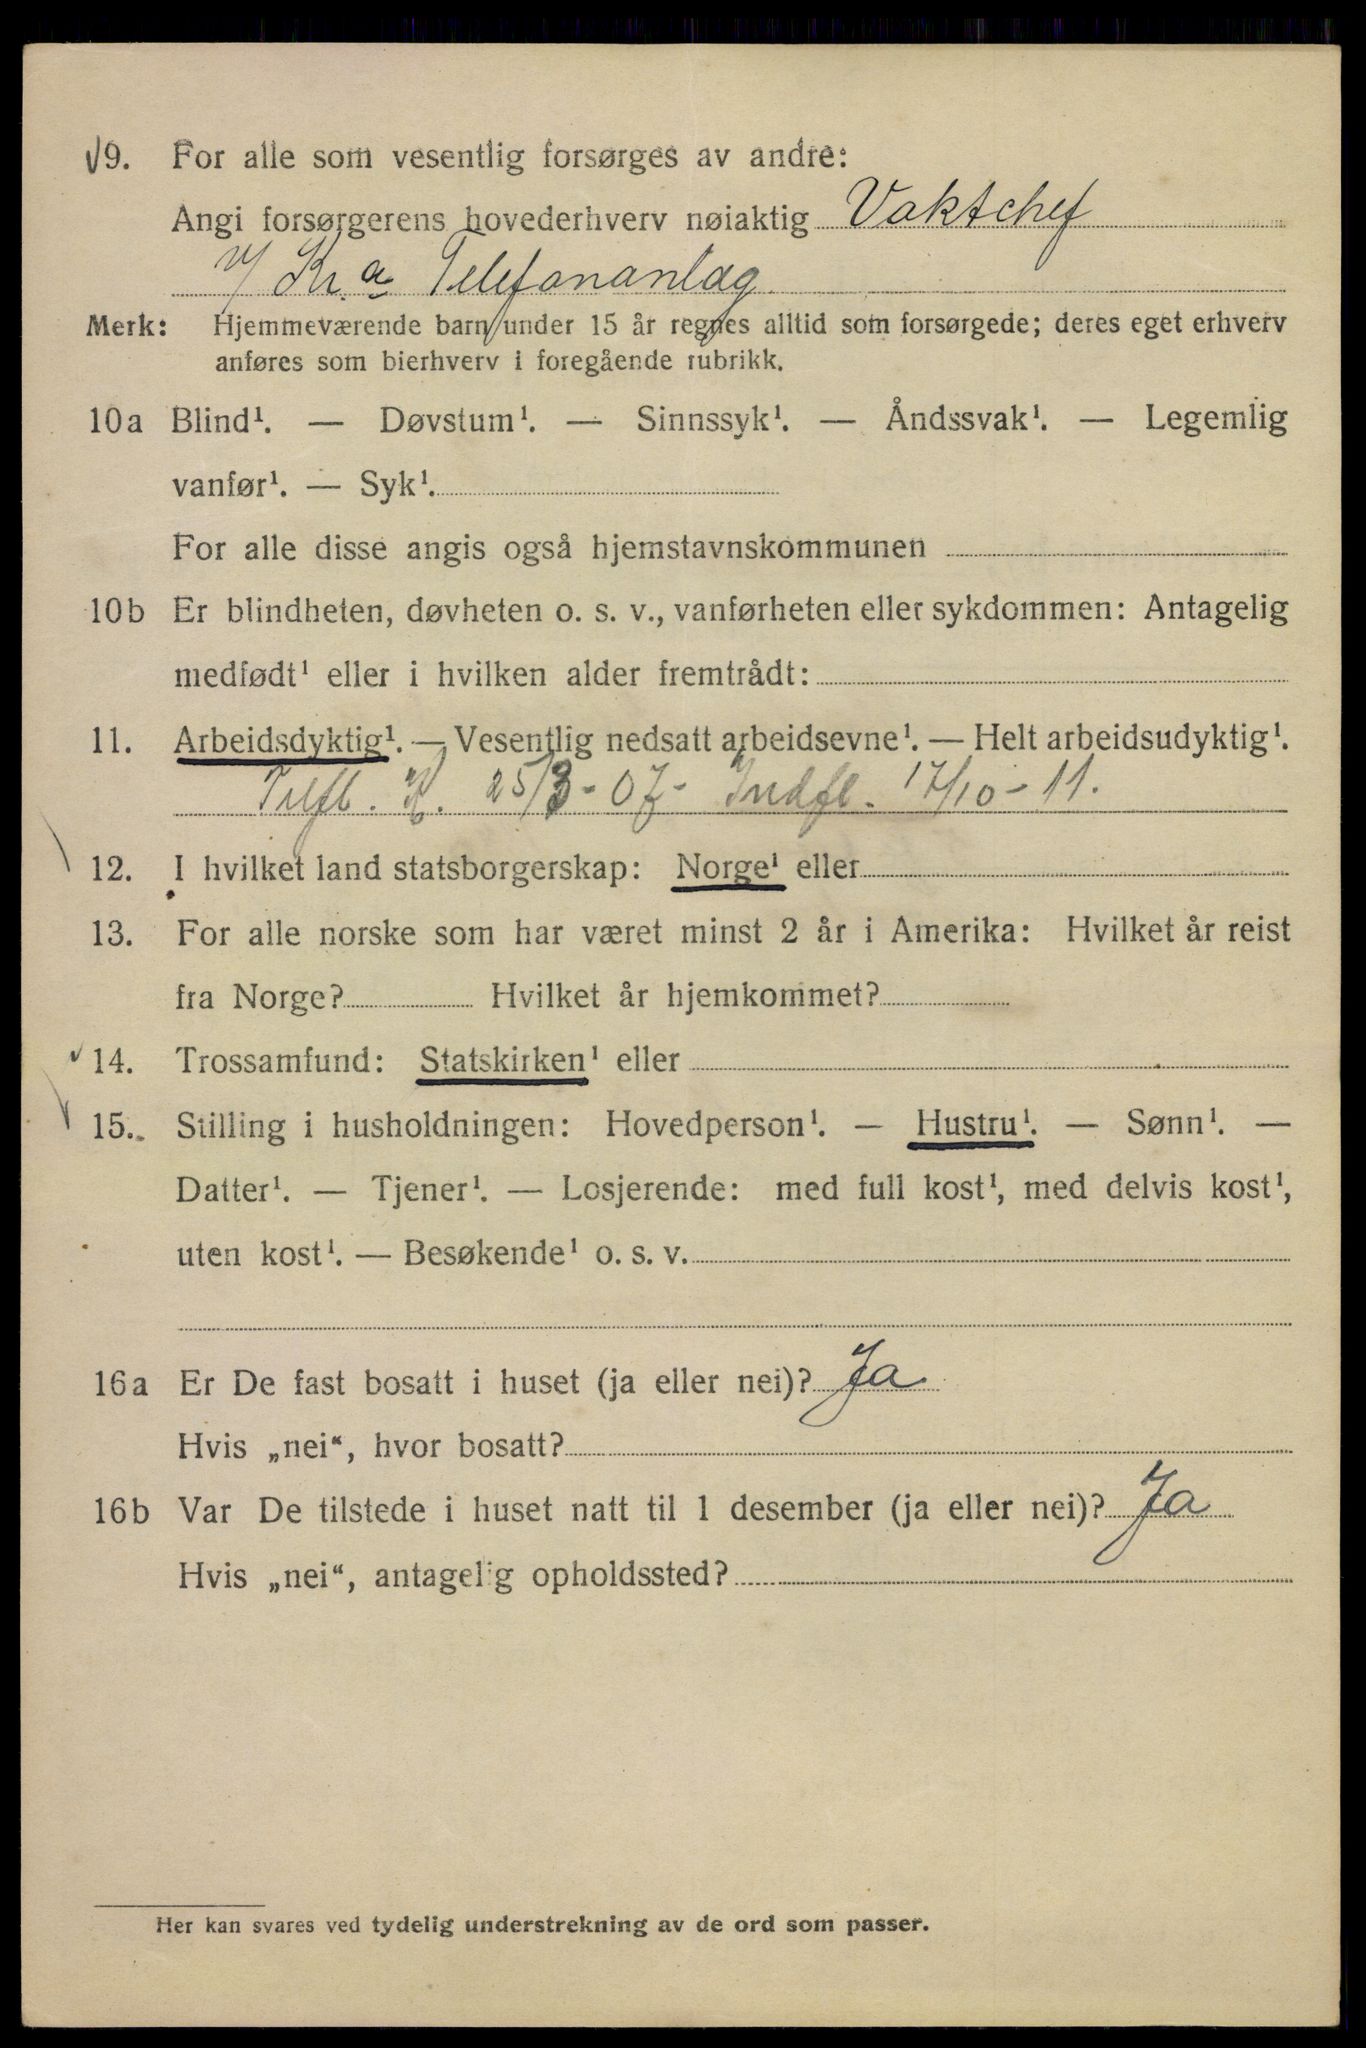 9. For alle som vesentlig forsørges av andre:
Angi forsørgerens hovederhverv nøiaktig Vaktchef
v/ Kr.a Telefonanlæg
Merk: Hjemmeværende barn under 15 år regnes alltid som forsørgede; deres eget erhverv
anføres som bierhverv i foregående rubrikk.
10a Blind¹. — Døvstum¹. — Sinnssyk¹. — Åndssvak¹. — Legemlig
vanfør¹. — Syk¹.
For alle disse angis også hjemstavnskommunen
10b Er blindheten, døvheten o. s. v., vanførheten eller sykdommen: Antagelig
medfødt¹ eller i hvilken alder fremtrådt:
11. Arbeidsdyktig¹. — Vesentlig nedsatt arbeidsevne¹. — Helt arbeidsudyktig¹.
Tilfl. K. 25/3-07- Indfl. 17/10-11.
12. I hvilket land statsborgerskap: Norge¹ eller
13. For alle norske som har været minst 2 år i Amerika: Hvilket år reist
fra Norge? Hvilket år hjemkommet?
14. Trossamfund: Statskirken¹ eller
15. Stilling i husholdningen: Hovedperson¹. — Hustru¹. — Sønn¹. —
Datter¹. — Tjener¹. — Losjerende: med full kost¹, med delvis kost¹,
uten kost¹. — Besøkende¹ o. s. v.
16a Er De fast bosatt i huset (ja eller nei)? Ja
Hvis „nei“, hvor bosatt?
16b Var De tilstede i huset natt til 1 desember (ja eller nei)? Ja
Hvis „nei“, antagelig opholdssted?
Her kan svares ved tydelig understrekning av de ord som passer.